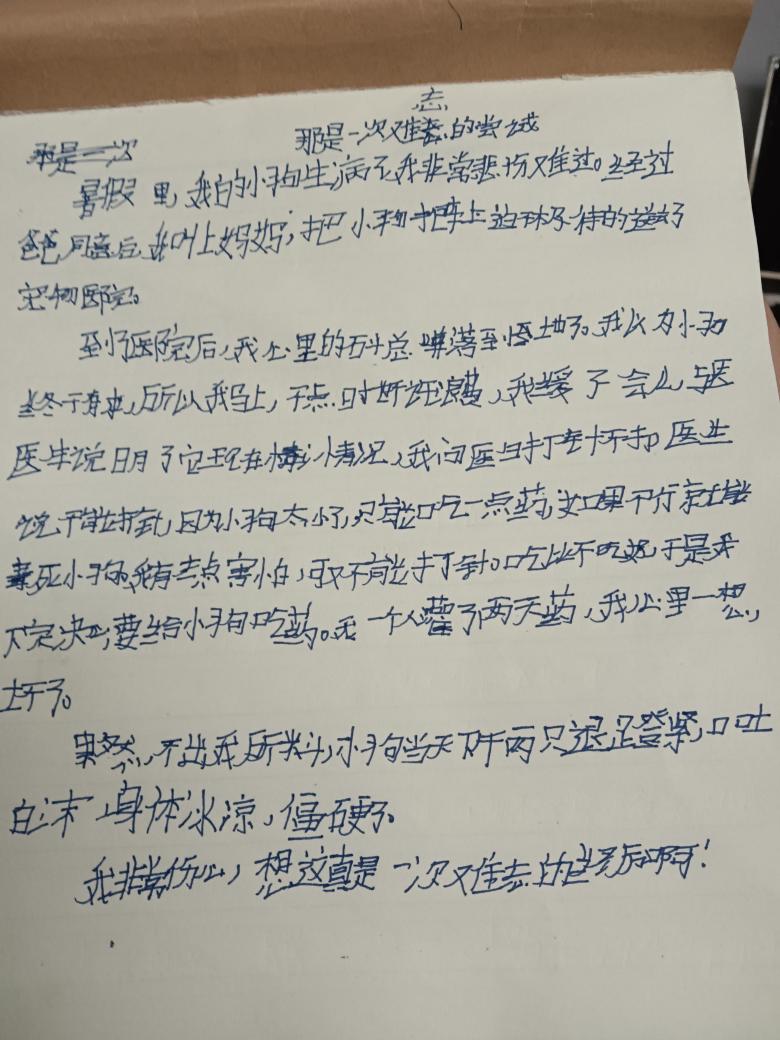 忘
那是一次难忘的尝试
暑假里,我的小狗生病了,我非常悲伤难过。经过
爸爸同意后,我叫上妈妈,把小狗抱上迫不及待的送去了
宠物医院。
到了医院后,我心里的石头总 落到 地了。我以为小狗
终于有救,所以我马上 ,我缓了会儿,
医生说明了它现在 情况,我问医生打 不打,医生
说不能打针,因为小狗太小了,只能吃一点药,如果不行就能
死小狗,我有点害怕,可不能打针。吃比不吃好,于是我
下定决心要给小狗吃药。我一个人灌了两天药,我心里一想,
坏了。
果然,不出我所料,小狗当天下午两只腿登紧,口吐
白沫 身体冰凉,僵硬了。
我非常伤心,想这真是一次难忘的 啊!